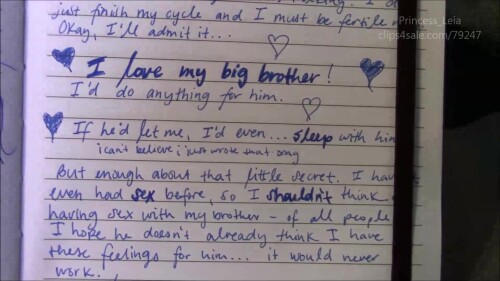 just finish my cycle and I must be fertile
Princess_Leia
Okay, I'll admit it...
clips4sale.com/79247
I love my big brother!
I'd do anything for him.
If he'd let me, I'd even... sleep with him
i can't believe i just wrote that omg
But enough about that little secret. I
even had sex before, so I shouldn't think
having sex with my brother - of all people
I hope he doesn't already think I have
these feelings for him... it would never
work.